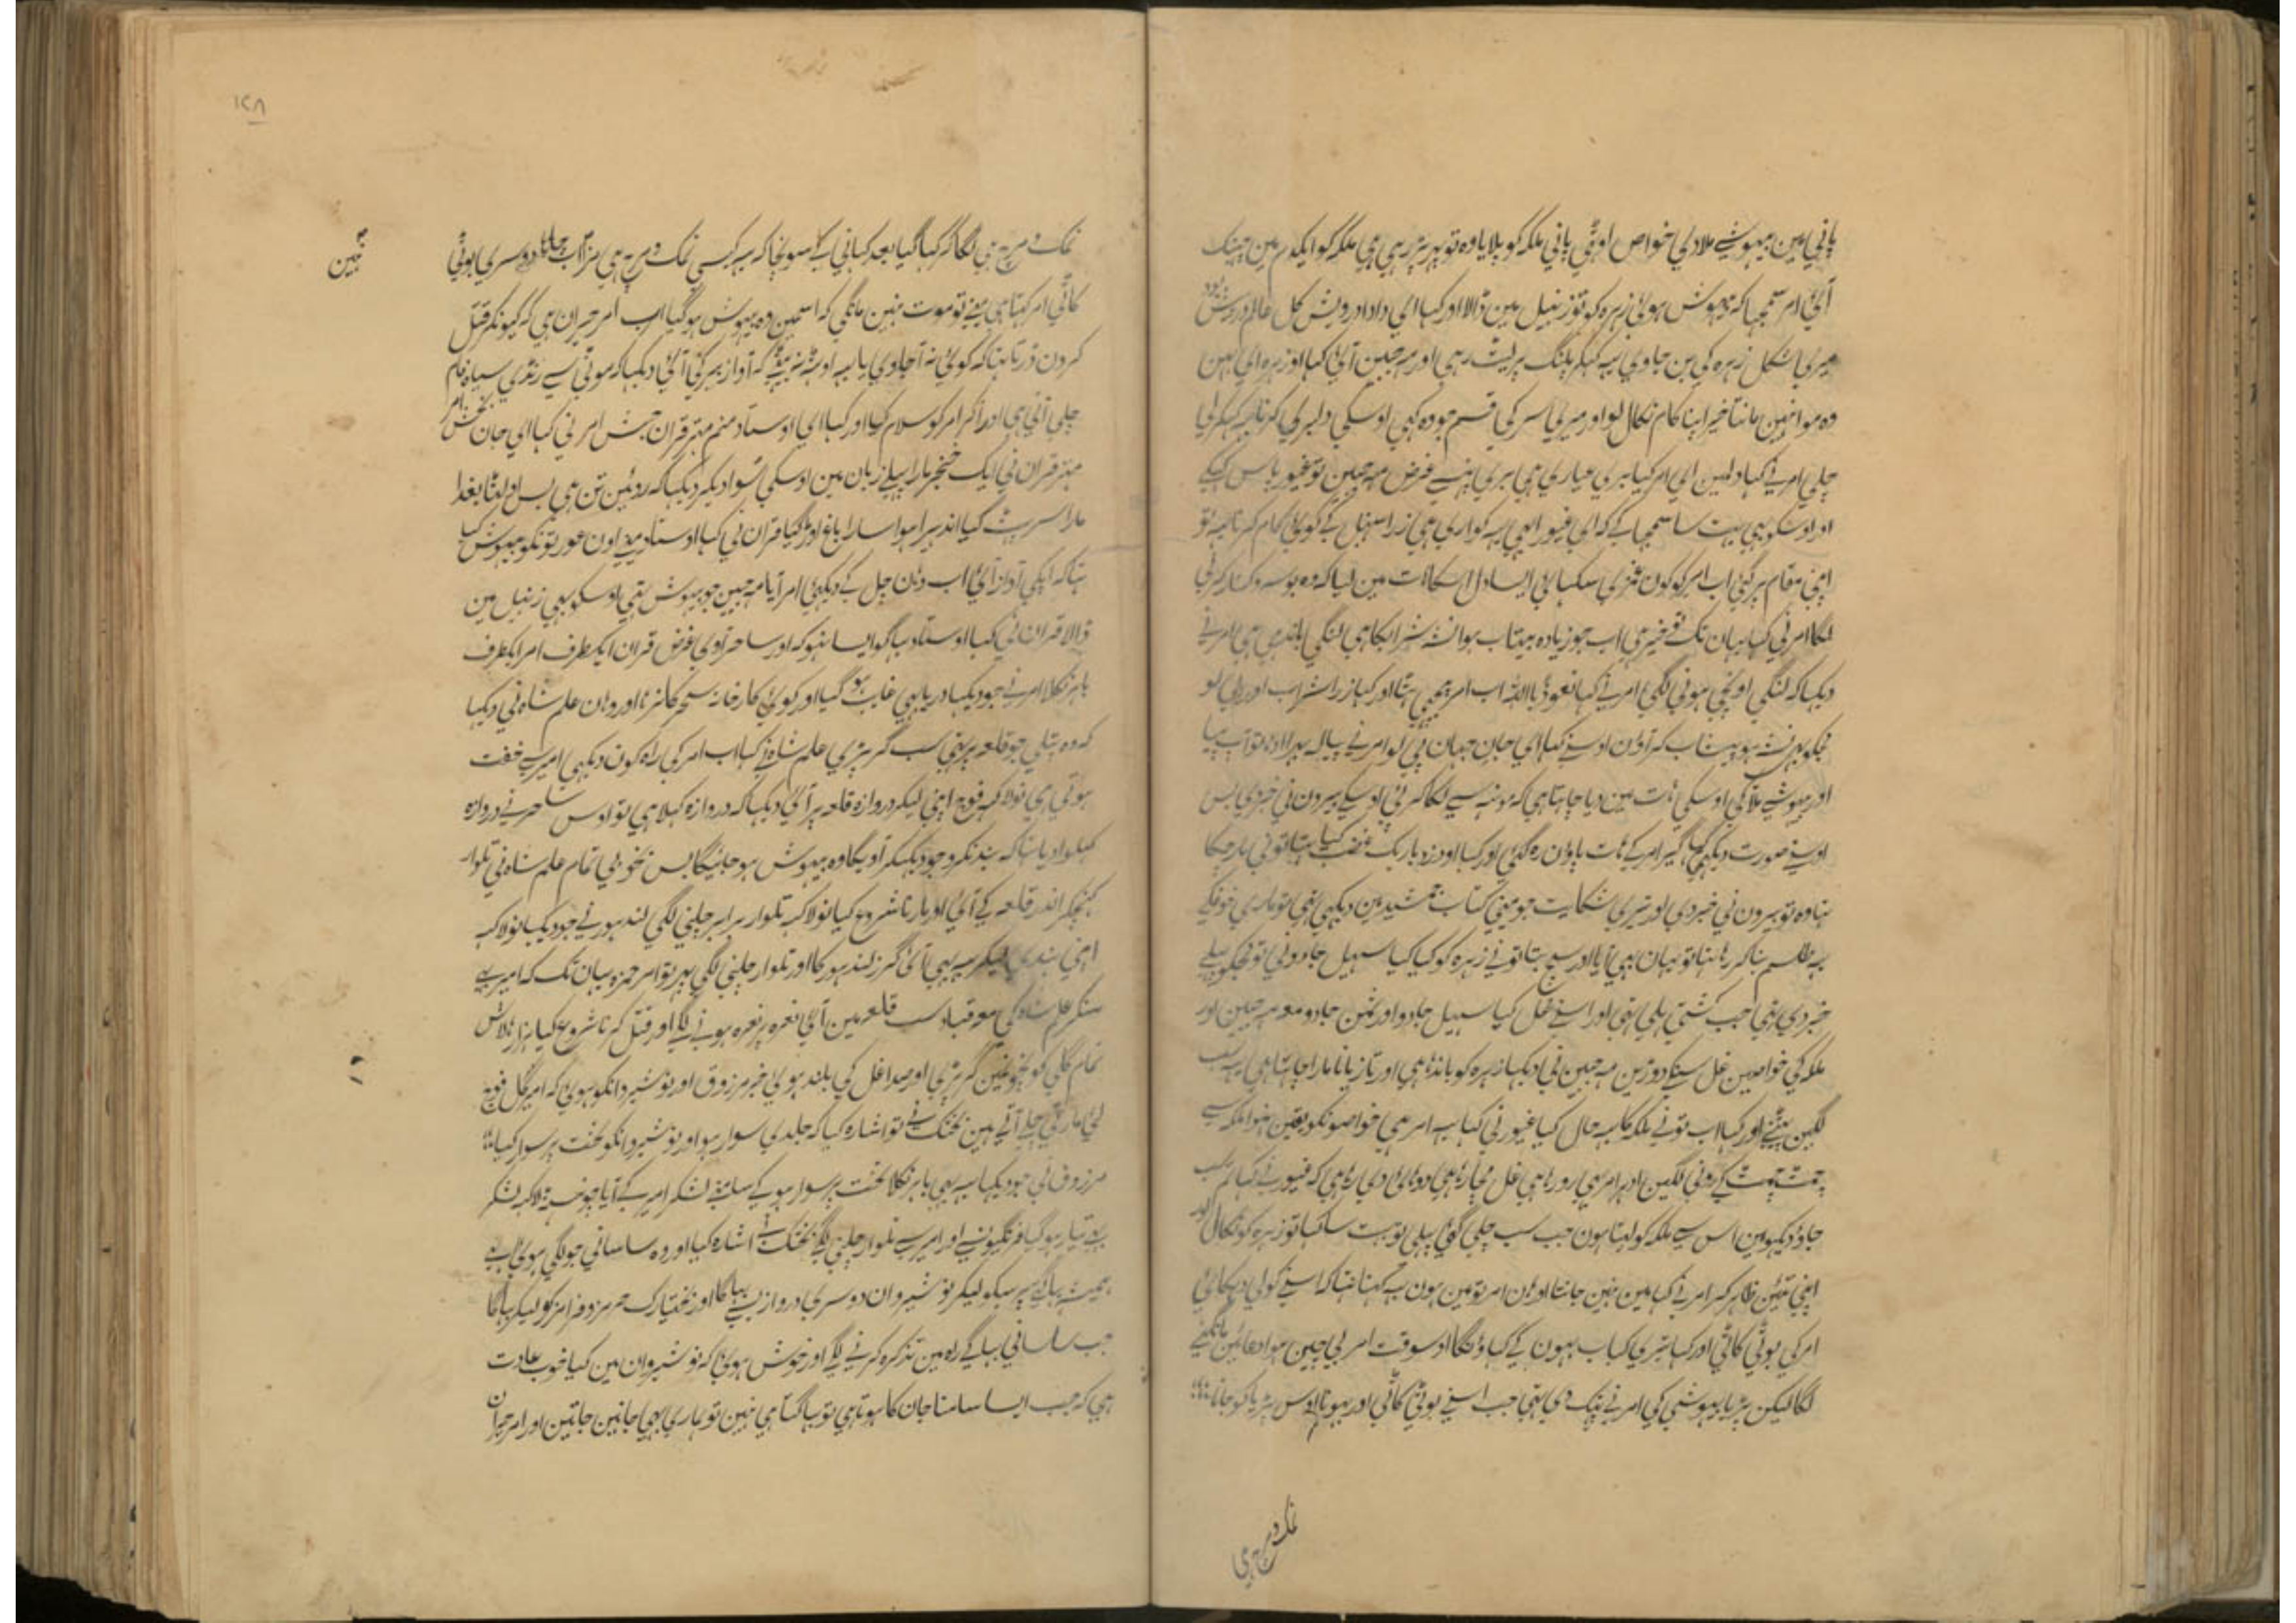 پانی مین بیہوشے ملادی خواص اوٹہی پانی ملکہ کو پلایا وہ تو پہر پڑ رہی ہی ملکہ کو ایکدم مین چہینک
آئی امر سمجہا کہ بیہوش ہوئی زہرہ کو تو زنبیل مین ڈالا اور کہا ای دادا درویش کل عالم درویش
میری شکل زہرہ کی بن جاوی یہ کہکر پلنگ پر لیٹ رہی اور مہ جبین آئی کہا اوزہرہ ای بہن
وہ موا نہین مانتا خیر اپنا کام نکال لو اور میری سر کی قسم جو وہ کہی اوسکی دلبری کرنا یہ کہکر لی
چلی امر نے کہا دلمین ای امر کیا بری عیاری ہی بری پہنسے غرض مہ جبین تو غیور پاس گئی
اور اوسکو بہی بہت سا سمجہا کے کہ ای غیور ابہی یہ کواری ہی زرا سنبہل کے کوئی کام کرنا یہ تو
اپنی مقام پر گئی اب امر کو کون فنڑی سکہائی ایسا دل اسکا ہات مین لیا کہ وہ بوسہ و کنار کرنی
لگا امر نی کہا یہان تک تو خیر ہی اب جو زیادہ بیتاب ہوا نشہ شراب کا ہی لنگی باندہی ہی امر نے
دیکہا کہ لنگی اونچی ہونی لگی امر نے کہا نعوذ باللہ اب امر پیچہی ہٹا اور کہا زرا شراب اور پی لو
مجکو بہر نشہ ہو بیتاب کر آون اوسنے کہا ای جان جہان پی لو امر نے پیالہ بہرا ادہا تو آپ پیا
اور بیہوشے ملا کی اوسکی ہات مین دیا چاہتا ہی کہ مونہہ سے لگا کر پی اوسکے بیرون نی خبر دی بس
اوسنے صورت دیکہی کہا گیر امر کے ہات پاوان رہ گئی اور کہا او دزد باریک غضب کیا ہتا تو نی مار چکا
ہتا وہ تو بیرون نی خبر دی اور تیری شکایت جو مینی کتاب جمشید مین دیکہی تہی تو ماری خوف کے
یہ طلسم بنا کر رہا ہتا تو یہان بہی آیا اور سچ بتا تو نے زہرہ کو کیا کیا سہیل جادو نی تو مجکو پہلے
خبر دی تہی جب کشتی ہلی تہی اور اسنے غل کیا سہیل جادو اور ثمن جادو معہ مہ جبین اور
ملکہ کی خواصین غل سنکے دوڑین مہ جبین نی دیکہا زہرہ کو باندہا ہی اور تازیانا مارا چاہتا ہی یہ سب
لگین پیٹنے اور کہا اب تو نے ملکہ کا یہ حال کیا غیور نی کہا یہ امر ہی خواصونکو یقین نہوا ملکہ سے
چمٹ چمٹ کے رونی لگین ادہر امر ہی رو رہا ہی غل مچا رہا ہی دوہائی دی رہا ہی کہ غیور نے کہا تم سب
جاؤ دیکہو مین اس سے ملکہ کو لیتا ہون جب سب چلی گئی پہلی تو بہت سا کہا تو زہرہ کو نکال اور
اپنی تئین ظاہر کر امر نے کہا مین نہین جانتا اوہان امر تو مین ہون یہ کہنا ہتا کہ اسنے گولی دیکہائی
امر کی بوٹی کاٹی اور کہا تیری کباب بہون کے کہاؤنگا اوسوقت امر بی چین ہوا دعائین مانگنے
لگا لیکن پڑیا بیہوشی کی امر نے پہینک دی تہی جب اسنے بوٹی کاٹی اور بہونا اوس پڑیا کو جانا
نمک و مرچ ہی
۱۲۸
نہین
نمک و مرچ ہی لگا کر کہا گیا بعد کہانی کے سونچا کہ یہ کیسی نمک و مرچ ہی سزا اب چاہا دوسری بوٹی
کاٹی امر کہتا ہی مینے تو موت نہین مانگی کہ اسمین وہ بیہوش ہو گیا اب امر حیران ہی کہ کیونکر قتل
کرون ڈرتا ہتا کہ کوئی نہ آجاوی یا یہہ اوٹہہ نہ بیٹہی کہ آواز بہر کی آئی دیکہا کہ موٹی سے رنڈی سیاہ فام
چلی آتی ہی اور آکر امر کو سلام کیا اور کہا ای اوستاد منم مہتر قران حبش امر نی کہا ای جان بخش امر
مہتر قران نی ایک خنجر مارا پہلے زبان مین اوسکی سوا دیکر دیکہا کہ روئین تن ہی بس اولٹا بغدا
مارا سر پہٹ گیا اندہیرا ہوا سارا باغ اوڑ گیا قران نی کہا اوستاد مینے اون عورتونکو بیہوش کیا
ہتا کہ ایکی آواز آئی اب وہان چل کے دیکہئی امر آیا مہ جبین جو بیہوش تہی اوسکو بہی زنبیل مین
ڈالا قران نی کہا اوستاد بہاگو ایسا نہو کہ اور ساحر آوی غرض قران ایکطرف امر ایکطرف
باہر نکلا امر نے جو دیکہا دریا بہی غایب ہو گیا اور کوئی کارخانہ سحر کا نرہا اور وہان علم شاہ نی دیکہا
کہ وہ پتلی جو قلعہ پر تہی سب گر پڑی علم شاہ نے کہا اب امر کی راہ کون دیکہی امیر سے خفت
ہوتی ہی نولاکہہ فوج اپنی لیکر دروازہ قلعہ پر آئی دیکہا کہ دروازہ کہلا ہی تو اوس ساحر نے دروازہ
کہلوا دیا ہتا کہ بند نکرو جو دیکہیگا آویگا وہ بیہوش ہو جائیگا بس بخوبی تمام علم شاہ نی تلوار
کہینچکر اندر قلعہ کے آئی اور مارنا شروع کیا نولاکہہ تلوار برابر چلنی لگی لندہور نے جو دیکہا نولاکہہ
اپنی ہندی لیکر یہ بہی آئی گرز لندہور کا اور تلوار چلنی لگی پہر تو امیر حمزہ یہان تک کہ امیر بہی
سنکر علم شاہ کی معہ قباد سب قلعہ مین آئی نعرہ پر نعرہ ہونے لگا اور قتل کرنا شروع کیا ہزارہا لاش
تمام گلی کوچونمین گر پڑی اور صدا غل کی بلند ہوئی خبر مرزوق اور نوشیروانکو ہوئی کہ امیر کل فوج
لی مارتی چلے آتے ہین بختک نے تو اشارہ کیا کہ جلدی سوار ہو اور نوشیروانکو تخت پر سوار کیا
مرزوق نی جو دیکہا یہ بہی باہر نکلا تخت پر سوار ہو کے سامنے لشکر امیر کے آیا چونسٹہہ لاکہہ لشکر
بہی تیار ہو گیا فرنگیونسے اور امیر سے تلوار چلنی لگی بختک نے اشارہ کیا اور وہ ساسانی جو لگی ہوئی تہے
ہمیشہ بہاگے پہر سبکو لیکر نوشیروان دوسری دروازے سے بہاگا اور بختیارک ہرمز و فرامرز کو لیکر بہاگا
جب ساسانی بہاگے راہ مین تذکرہ کرنے لگے اور خوش ہوئی کہ نوشیروان مین کیا خوب عادت
ہی کہ جب ایسا سامنا جان کا ہوتا ہی تو بہاگتا ہی نہین تو ہماری بہی جانین جاتین اور امر حیران